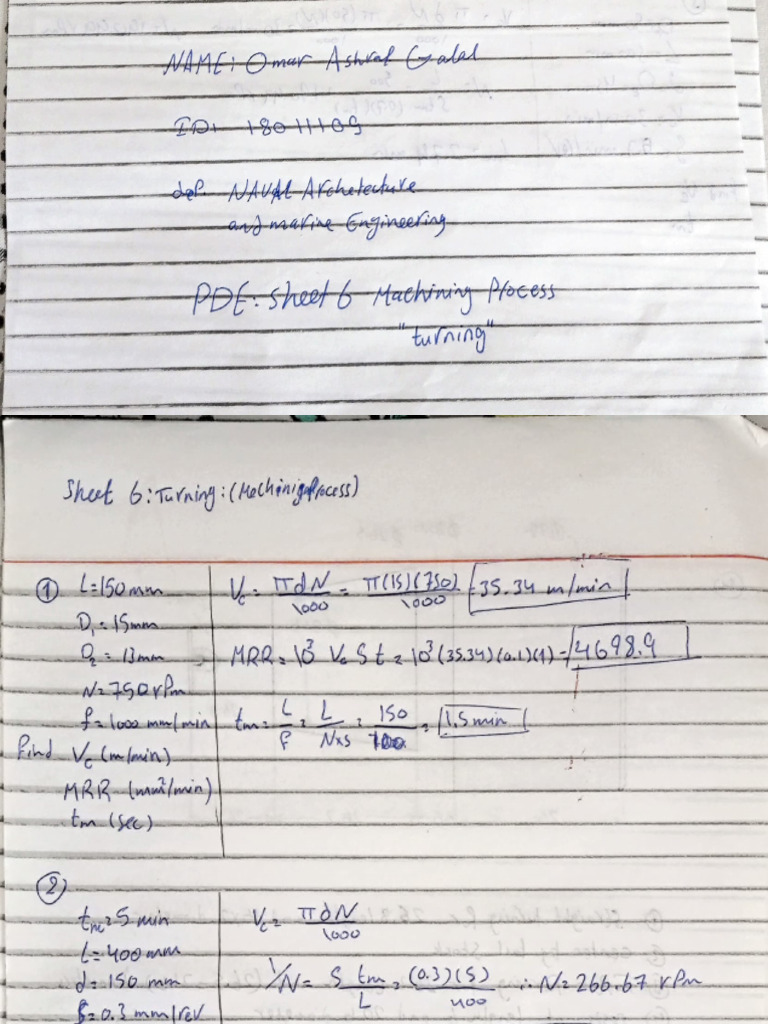 NAME: Omar Ashraf Galal
ID: 18011109
deP. NAVAL Architecture
and marine Engineering
PDE: Sheet 6 Machining Process
"turning"
Sheet 6: Turning: (Mechinig Process)
① L=150mm
D₁=15mm
D₂=13mm
N=750 rPm
f=1000 mm/min
find Vc (m/min)
MRR (mm²/min)
tm (sec)
Vc = πdN/1000 = π(15)(750)/1000 = 35.34 m/min
MRR = 10³ Vc S t = 10³ (35.34)(0.1)(1) = 4698.9
tm = L/f = L/N×S = 150/100 = 1.5min
②
tm=5 min
L=400mm
d=150 mm
f=0.3 mm/rev
Vc= πdN/1000
1/N = S tm/L = (0.3)(5)/400 ∴ N=266.67 rPm